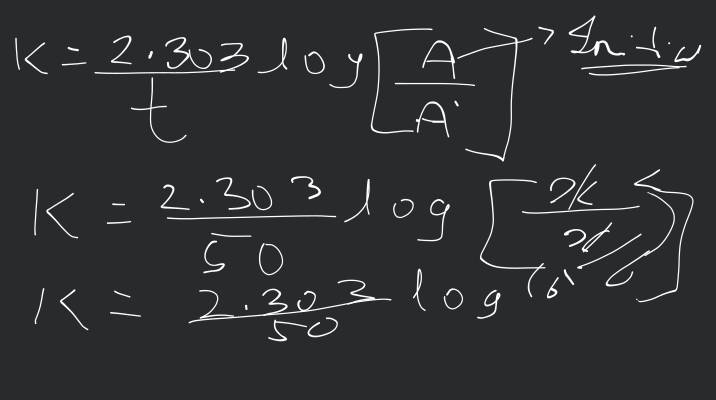 K = 2.303/t log [A/A'] → Initia
K = 2.303/50 log [x/x/
K = 2.303/50 log